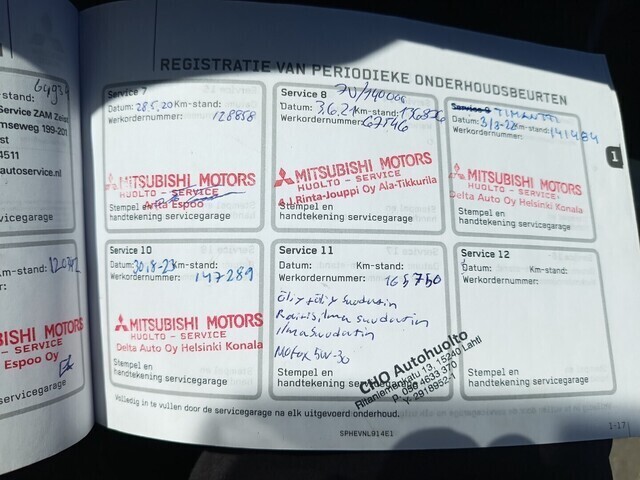 REGISTRATIE VAN PERIODIEKE ONDERHOUDSBEURTEN
64934
-stand:
Service ZAM Zeist
mseweg 199-201
4511
autoservice.nl
servicegarage
m-stand: 120342
MITSUBISHI MOTORS
HUOLTO - SERVICE
Espoo Oy
servicegarage
Service 7
Datum: 28.5.20 Km-stand:
Werkordernummer: 128858
MITSUBISHI MOTORS
HUOLTO - SERVICE
Espoo
Stempel en
handtekening servicegarage
Service 8
7V/140000
Datum: 3.6.21 Km-stand: 136826
Werkordernummer: 67546
MITSUBISHI MOTORS
HUOLTO - SERVICE
J.Rinta-Jouppi Oy Ala-Tikkurila
Stempel en
handtekening servicegarage
Service 9 TIMANTTI
Datum: 3/8-22 Km-stand: 141484
Werkordernummer:
MITSUBISHI MOTORS
HUOLTO - SERVICE
Delta Auto Oy Helsinki Konala
Stempel en
handtekening servicegarage
1
Service 10
Datum: 30.8-23 Km-stand:
Werkordernummer: 147289
MITSUBISHI MOTORS
HUOLTO - SERVICE
Delta Auto Oy Helsinki Konala
Stempel en
handtekening servicegarage
Service 11
Datum: Km-stand:
Werkordernummer: 165750
Öljy + öljy suodatin
Raitis ilma suodatin
ilmasuodatin
Motox 5W-30
Stempel en
handtekening servicegarage
CHO Autohuolto
Ritaniemenkatu 13, 15240 Lahti
P. 050 4633 370
Y: 2918952-1
Service 12
Datum: Km-stand:
Werkordernummer:
Stempel en
handtekening servicegarage
Volledig in te vullen door de servicegarage na elk uitgevoerd onderhoud.
SPHEVNL914E1
1-17